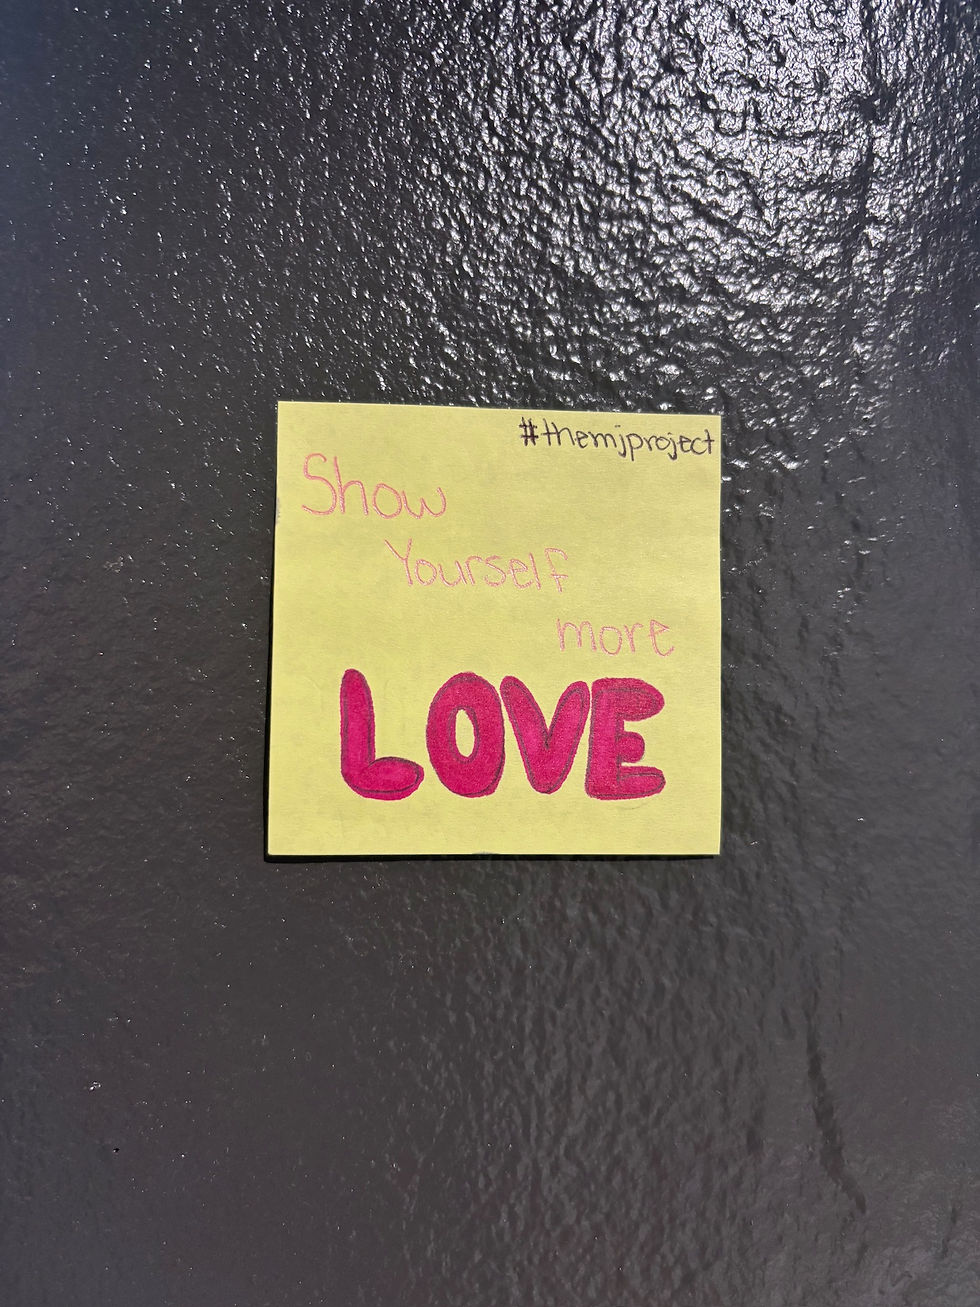 #themjproject
Show
Yourself
more
LOVE